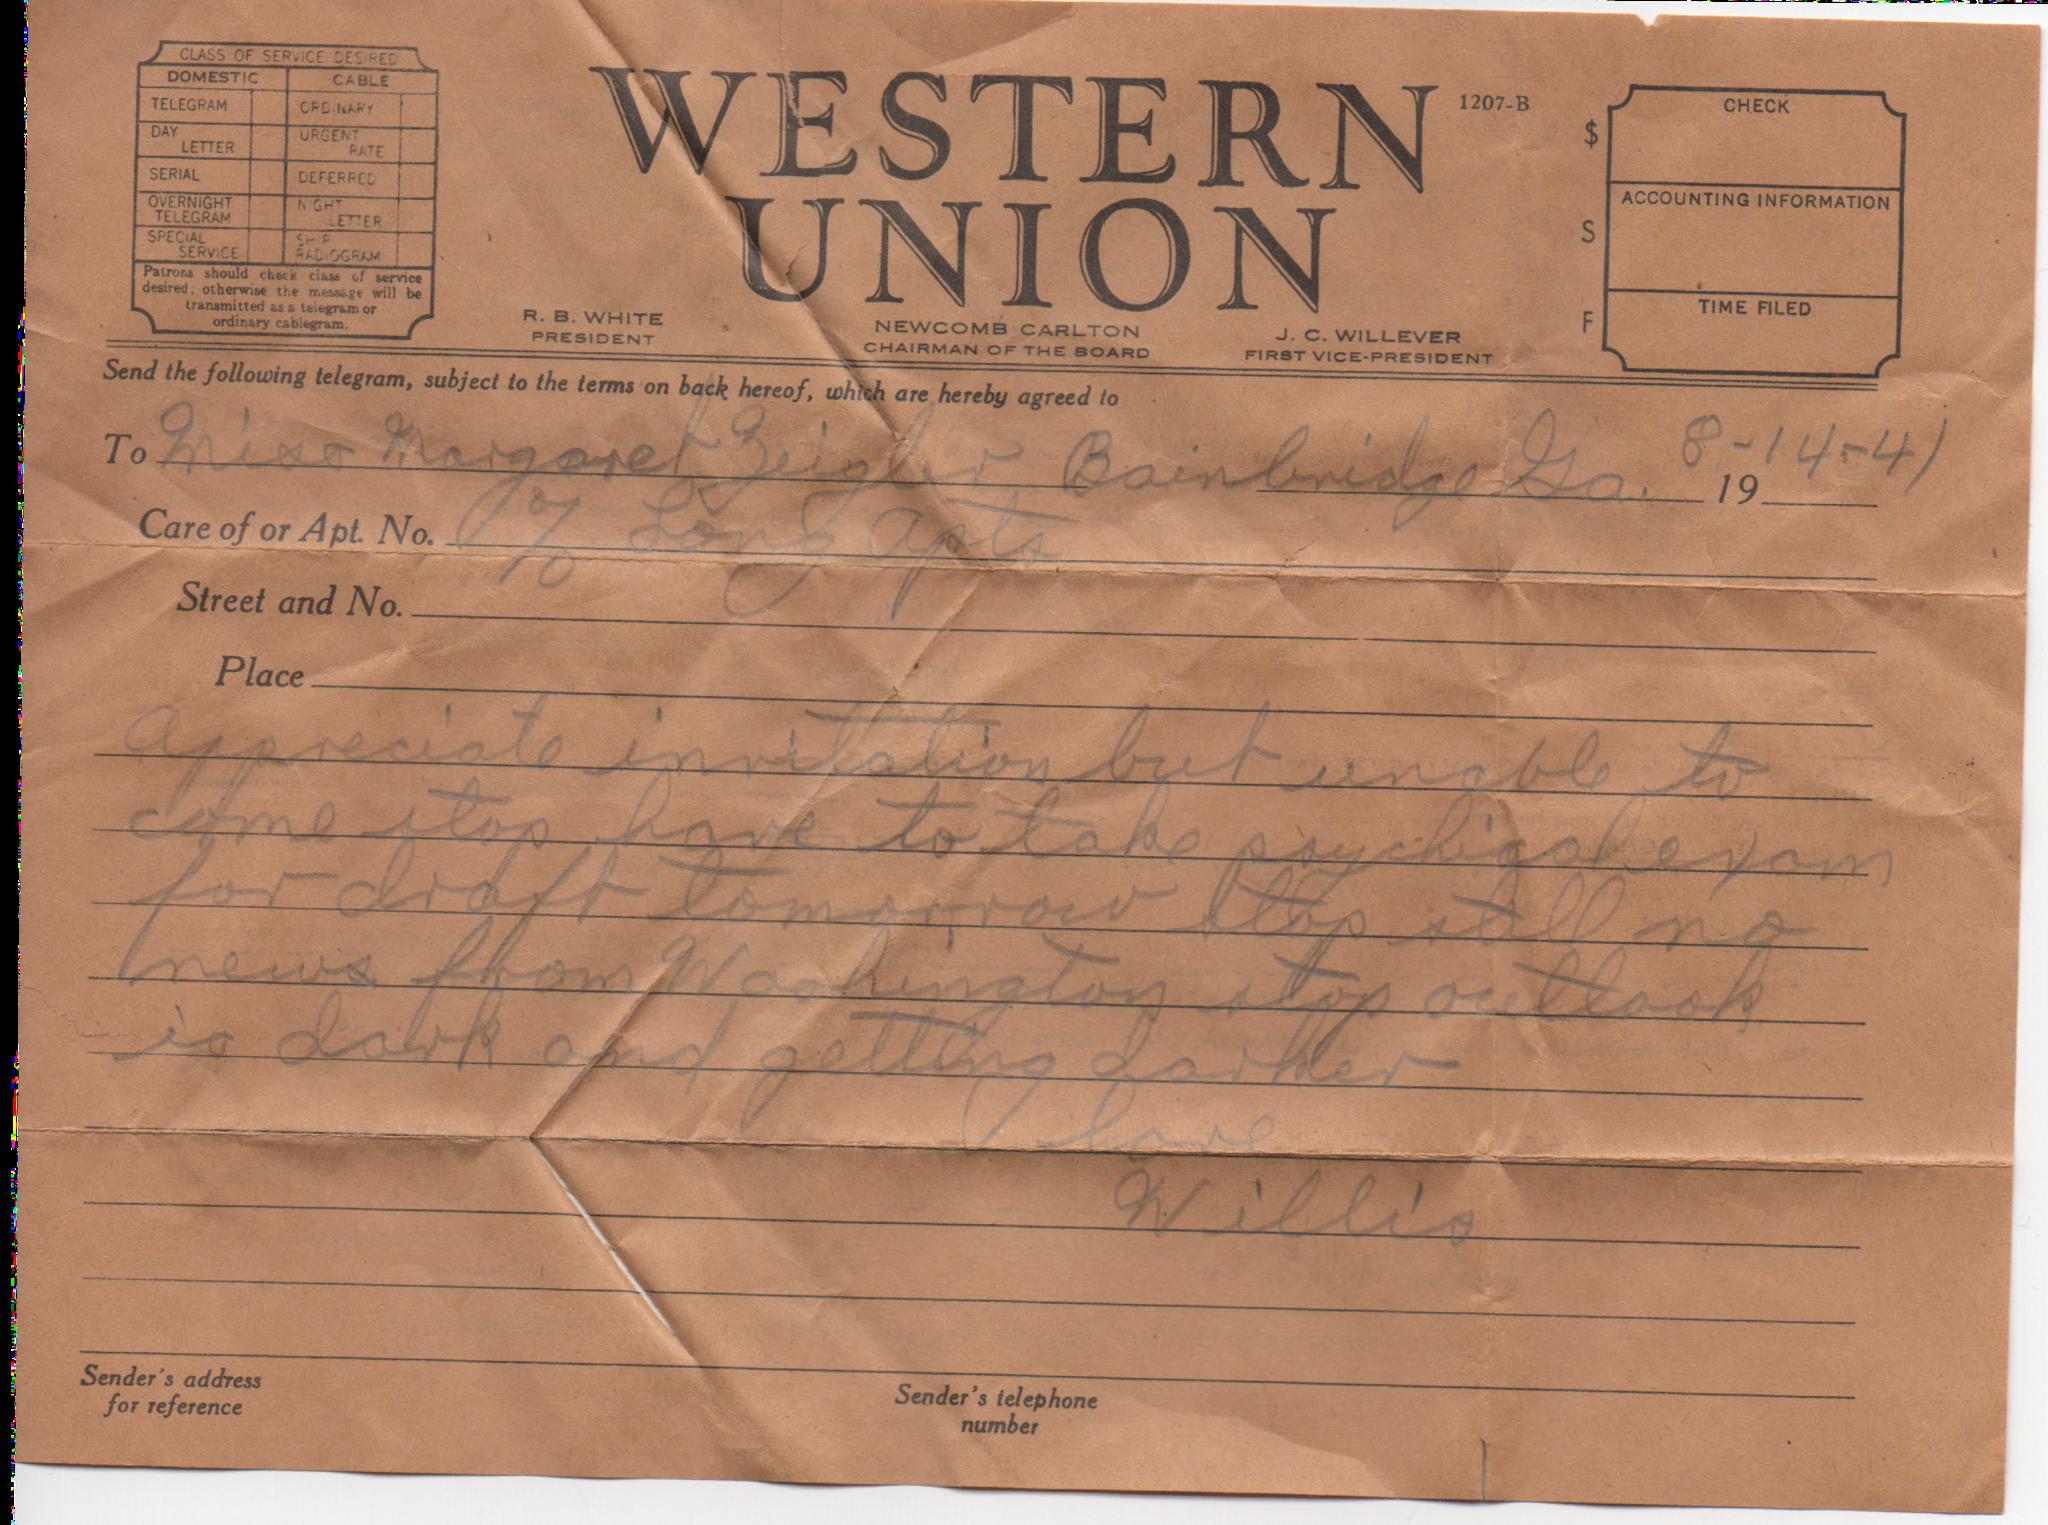 CLASS OF SERVICE DESIRED
DOMESTIC CABLE
TELEGRAM ORDINARY
DAY LETTER URGENT RATE
SERIAL DEFERRED
OVERNIGHT TELEGRAM NIGHT LETTER
SPECIAL SERVICE SHIP RADIOGRAM
Patrons should check class of service
desired; otherwise the message will be
transmitted as a telegram or
ordinary cablegram.
WESTERN
UNION
1207-B
R. B. WHITE
PRESIDENT
NEWCOMB CARLTON
CHAIRMAN OF THE BOARD
J. C. WILLEVER
FIRST VICE-PRESIDENT
$ CHECK
S ACCOUNTING INFORMATION
F TIME FILED
Send the following telegram, subject to the terms on back hereof, which are hereby agreed to
To Miss Margaret Zeigler Bainbridge Ga. 8-14-41 19
Care of or Apt. No. % Long Apts
Street and No.
Place
Appreciate invitation but unable to
come stop have to take psychical exam
for draft tomorrow stop still no
news from Washington stop outlook
is dark and getting darker
Love
Willis
Sender's address
for reference
Sender's telephone
number